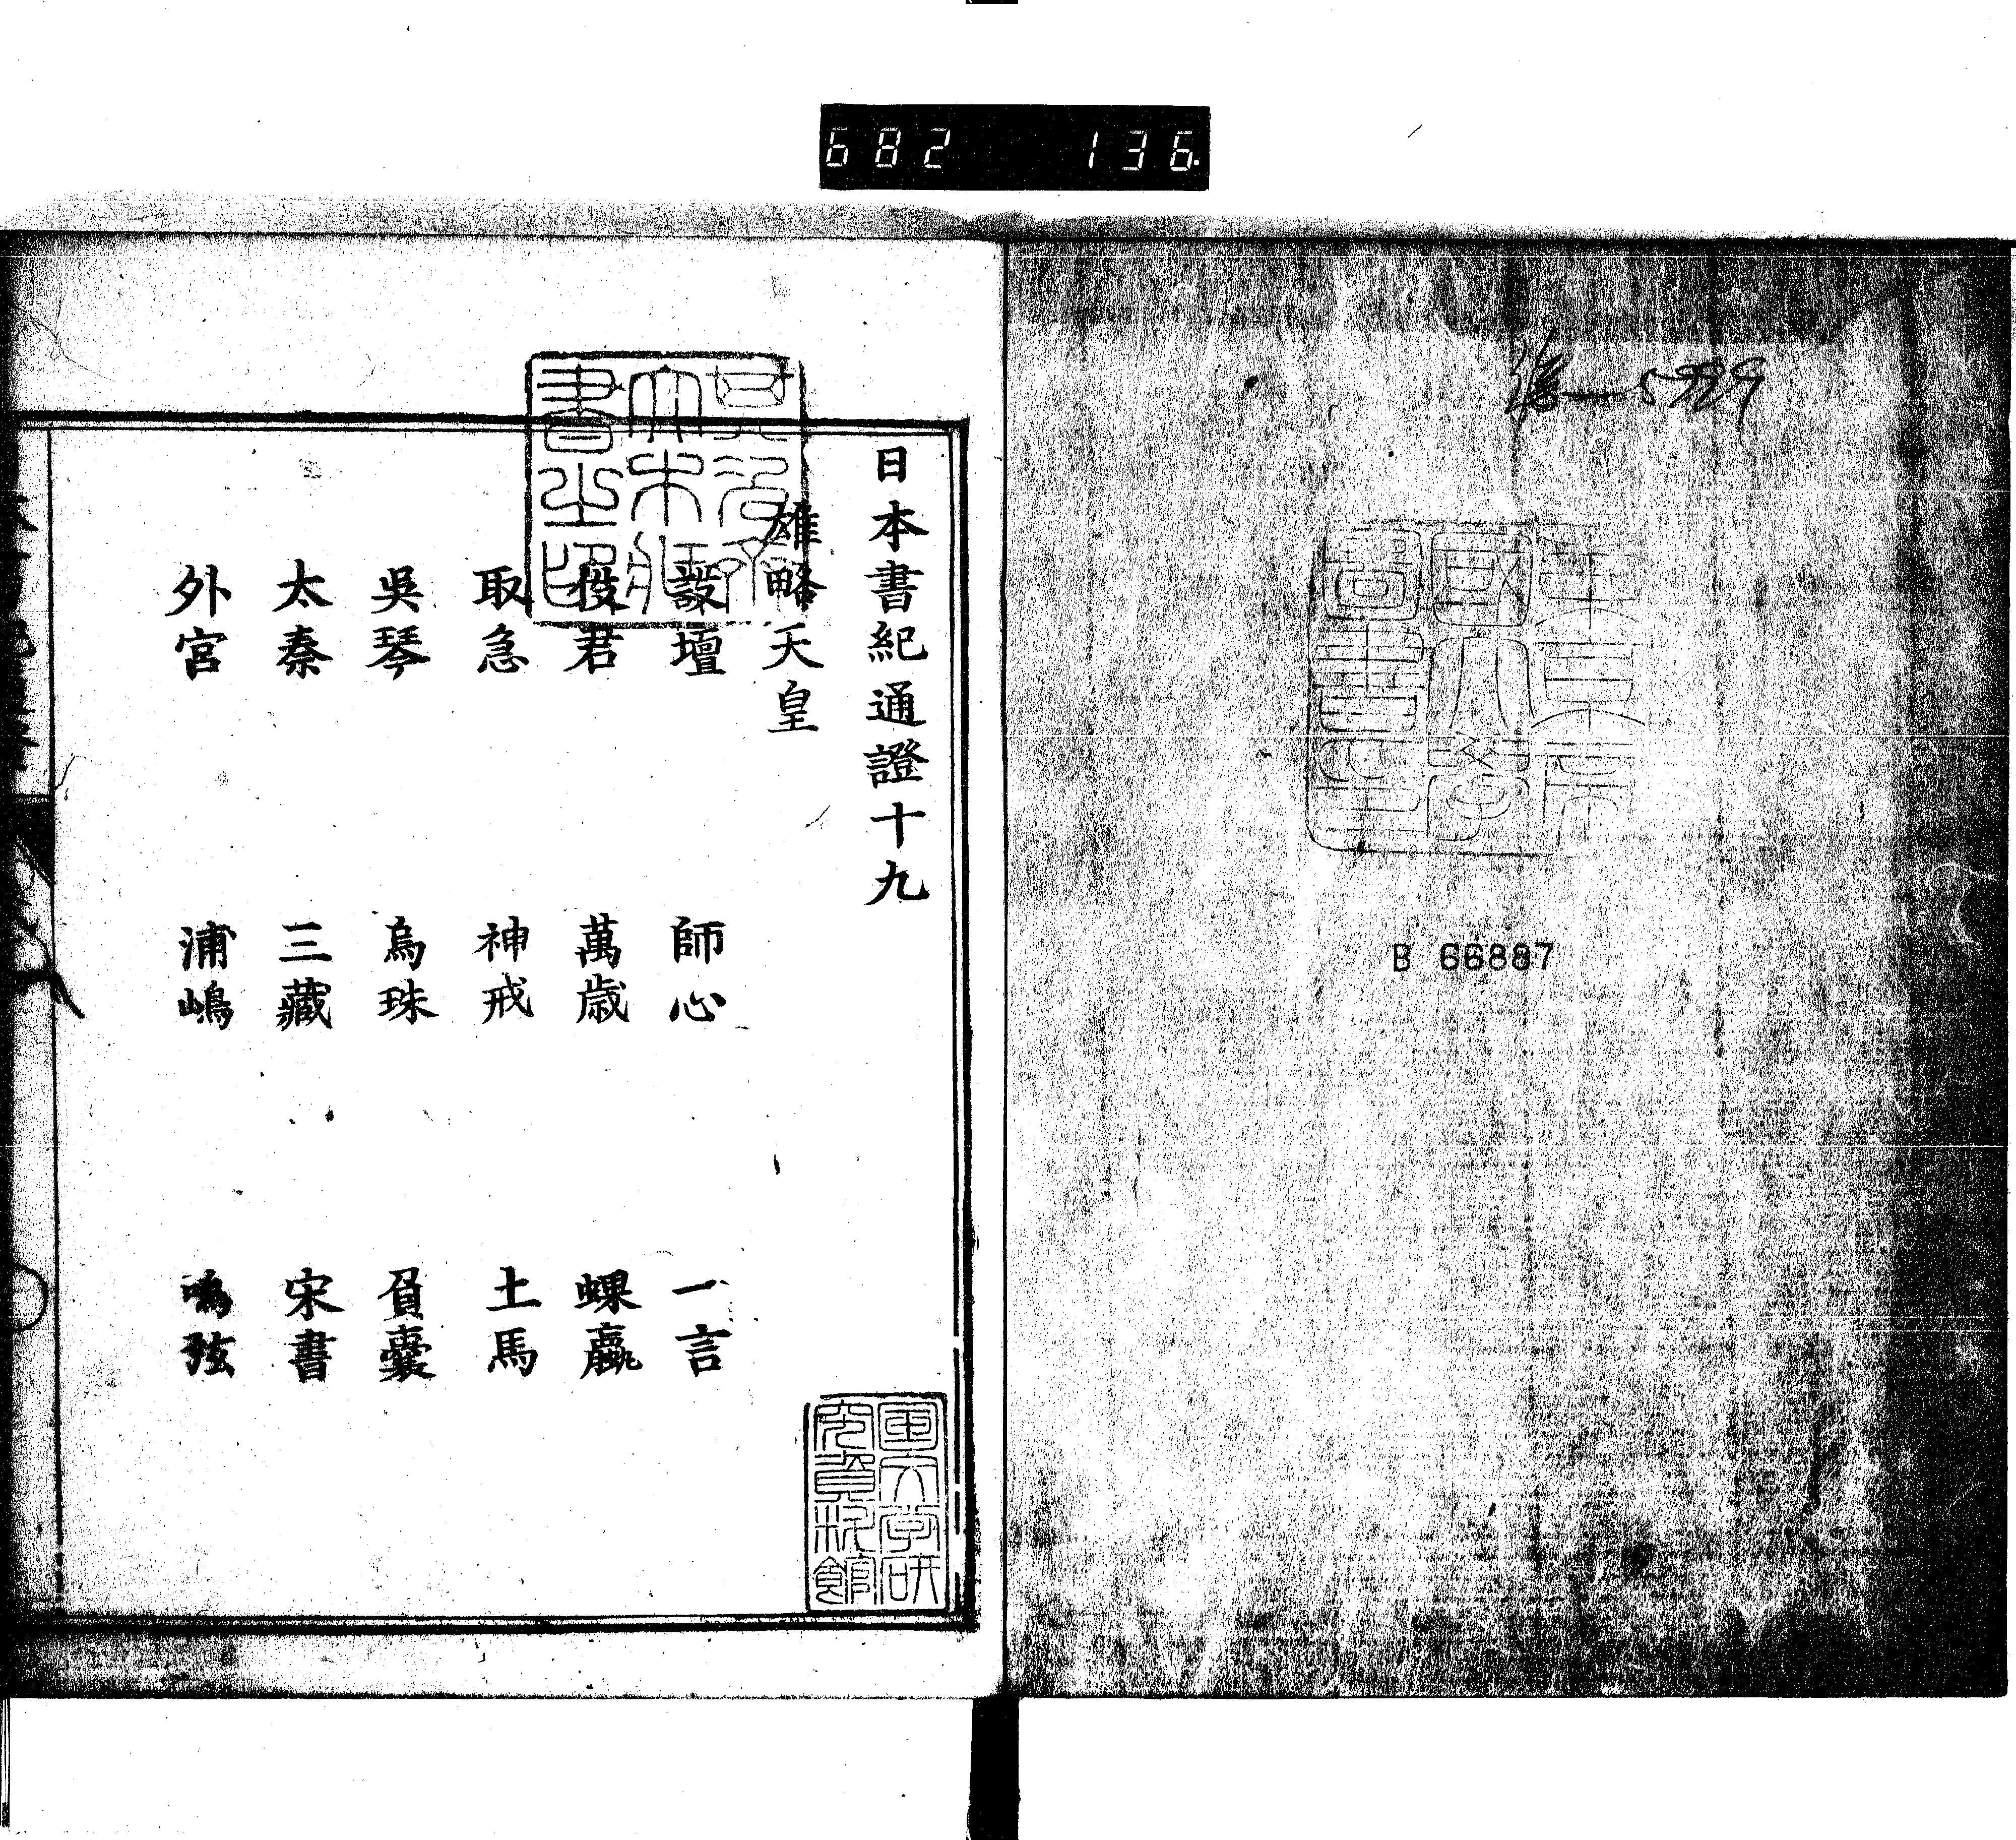 682 136
B 66887
日本書紀通證十九
雄略天皇
設壇 師心 一言
役君 萬歳 蜾蠃
取急 神戒 土馬
吳琴 烏珠 負囊
太秦 三藏 宋書
外宮 浦嶋 鳴弦
國文学研
究資料館